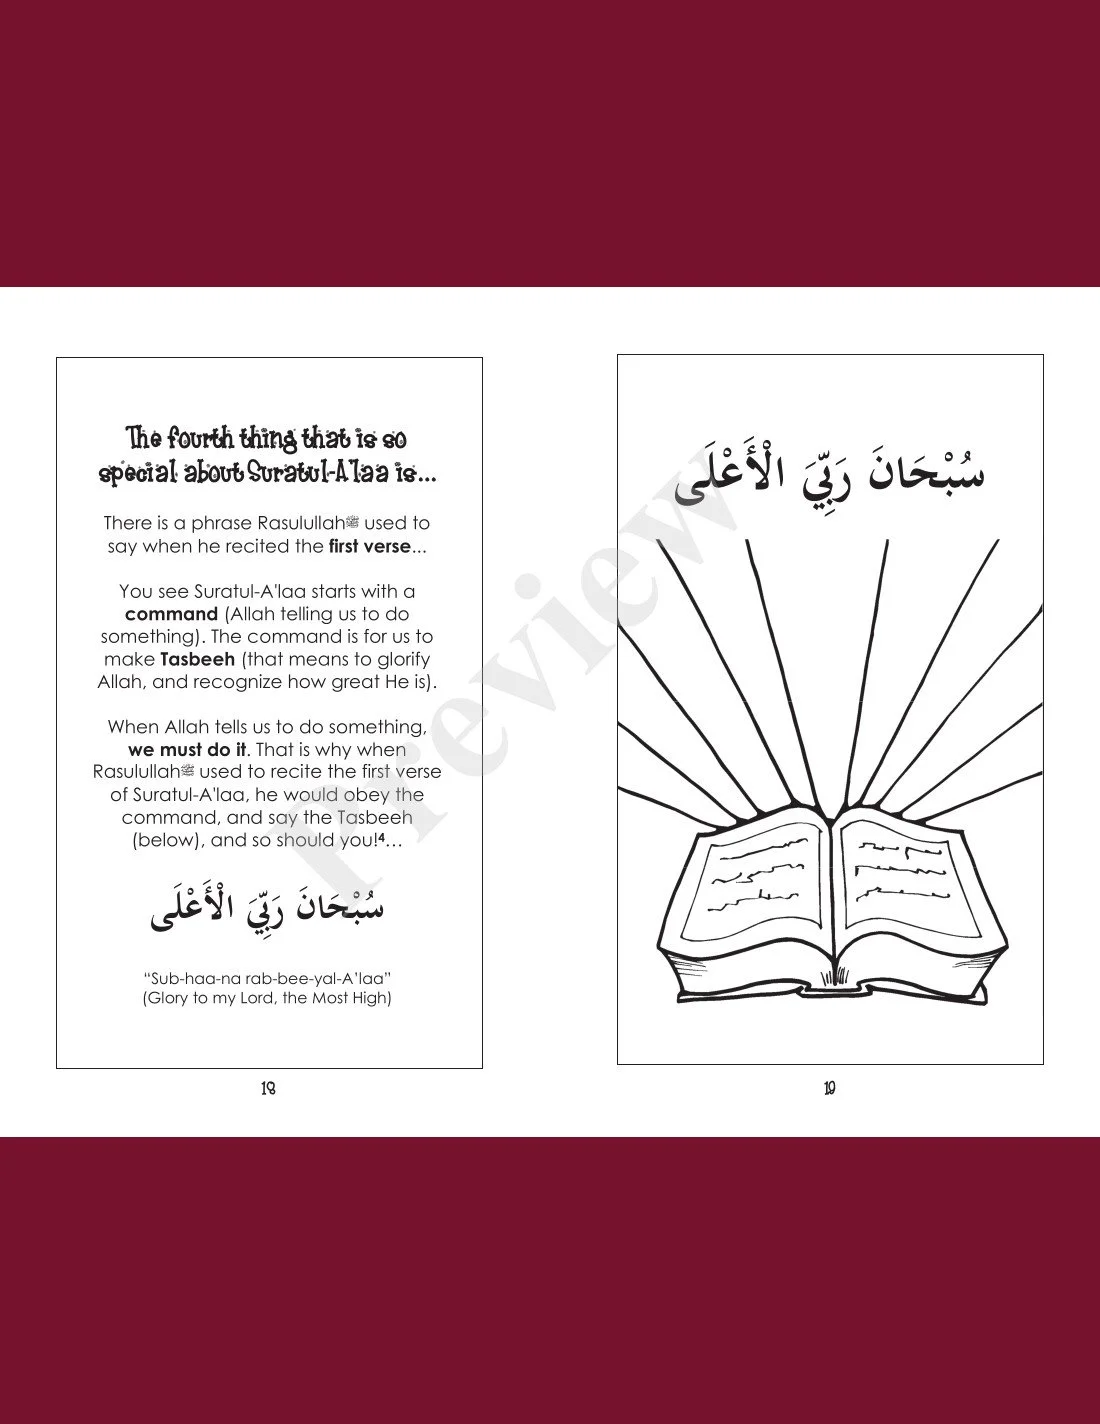 The fourth thing that is so
special about Suratul-A'laa is...
There is a phrase Rasulullahﷺ used to
say when he recited the first verse...
You see Suratul-A'laa starts with a
command (Allah telling us to do
something). The command is for us to
make Tasbeeh (that means to glorify
Allah, and recognize how great He is).
When Allah tells us to do something,
we must do it. That is why when
Rasulullahﷺ used to recite the first verse
of Suratul-A'laa, he would obey the
command, and say the Tasbeeh
(below), and so should you!⁴...
سُبْحَانَ رَبِّيَ الْأَعْلَى
“Sub-haa-na rab-bee-yal-A’laa”
(Glory to my Lord, the Most High)
18
سُبْحَانَ رَبِّيَ الْأَعْلَى
19
Preview